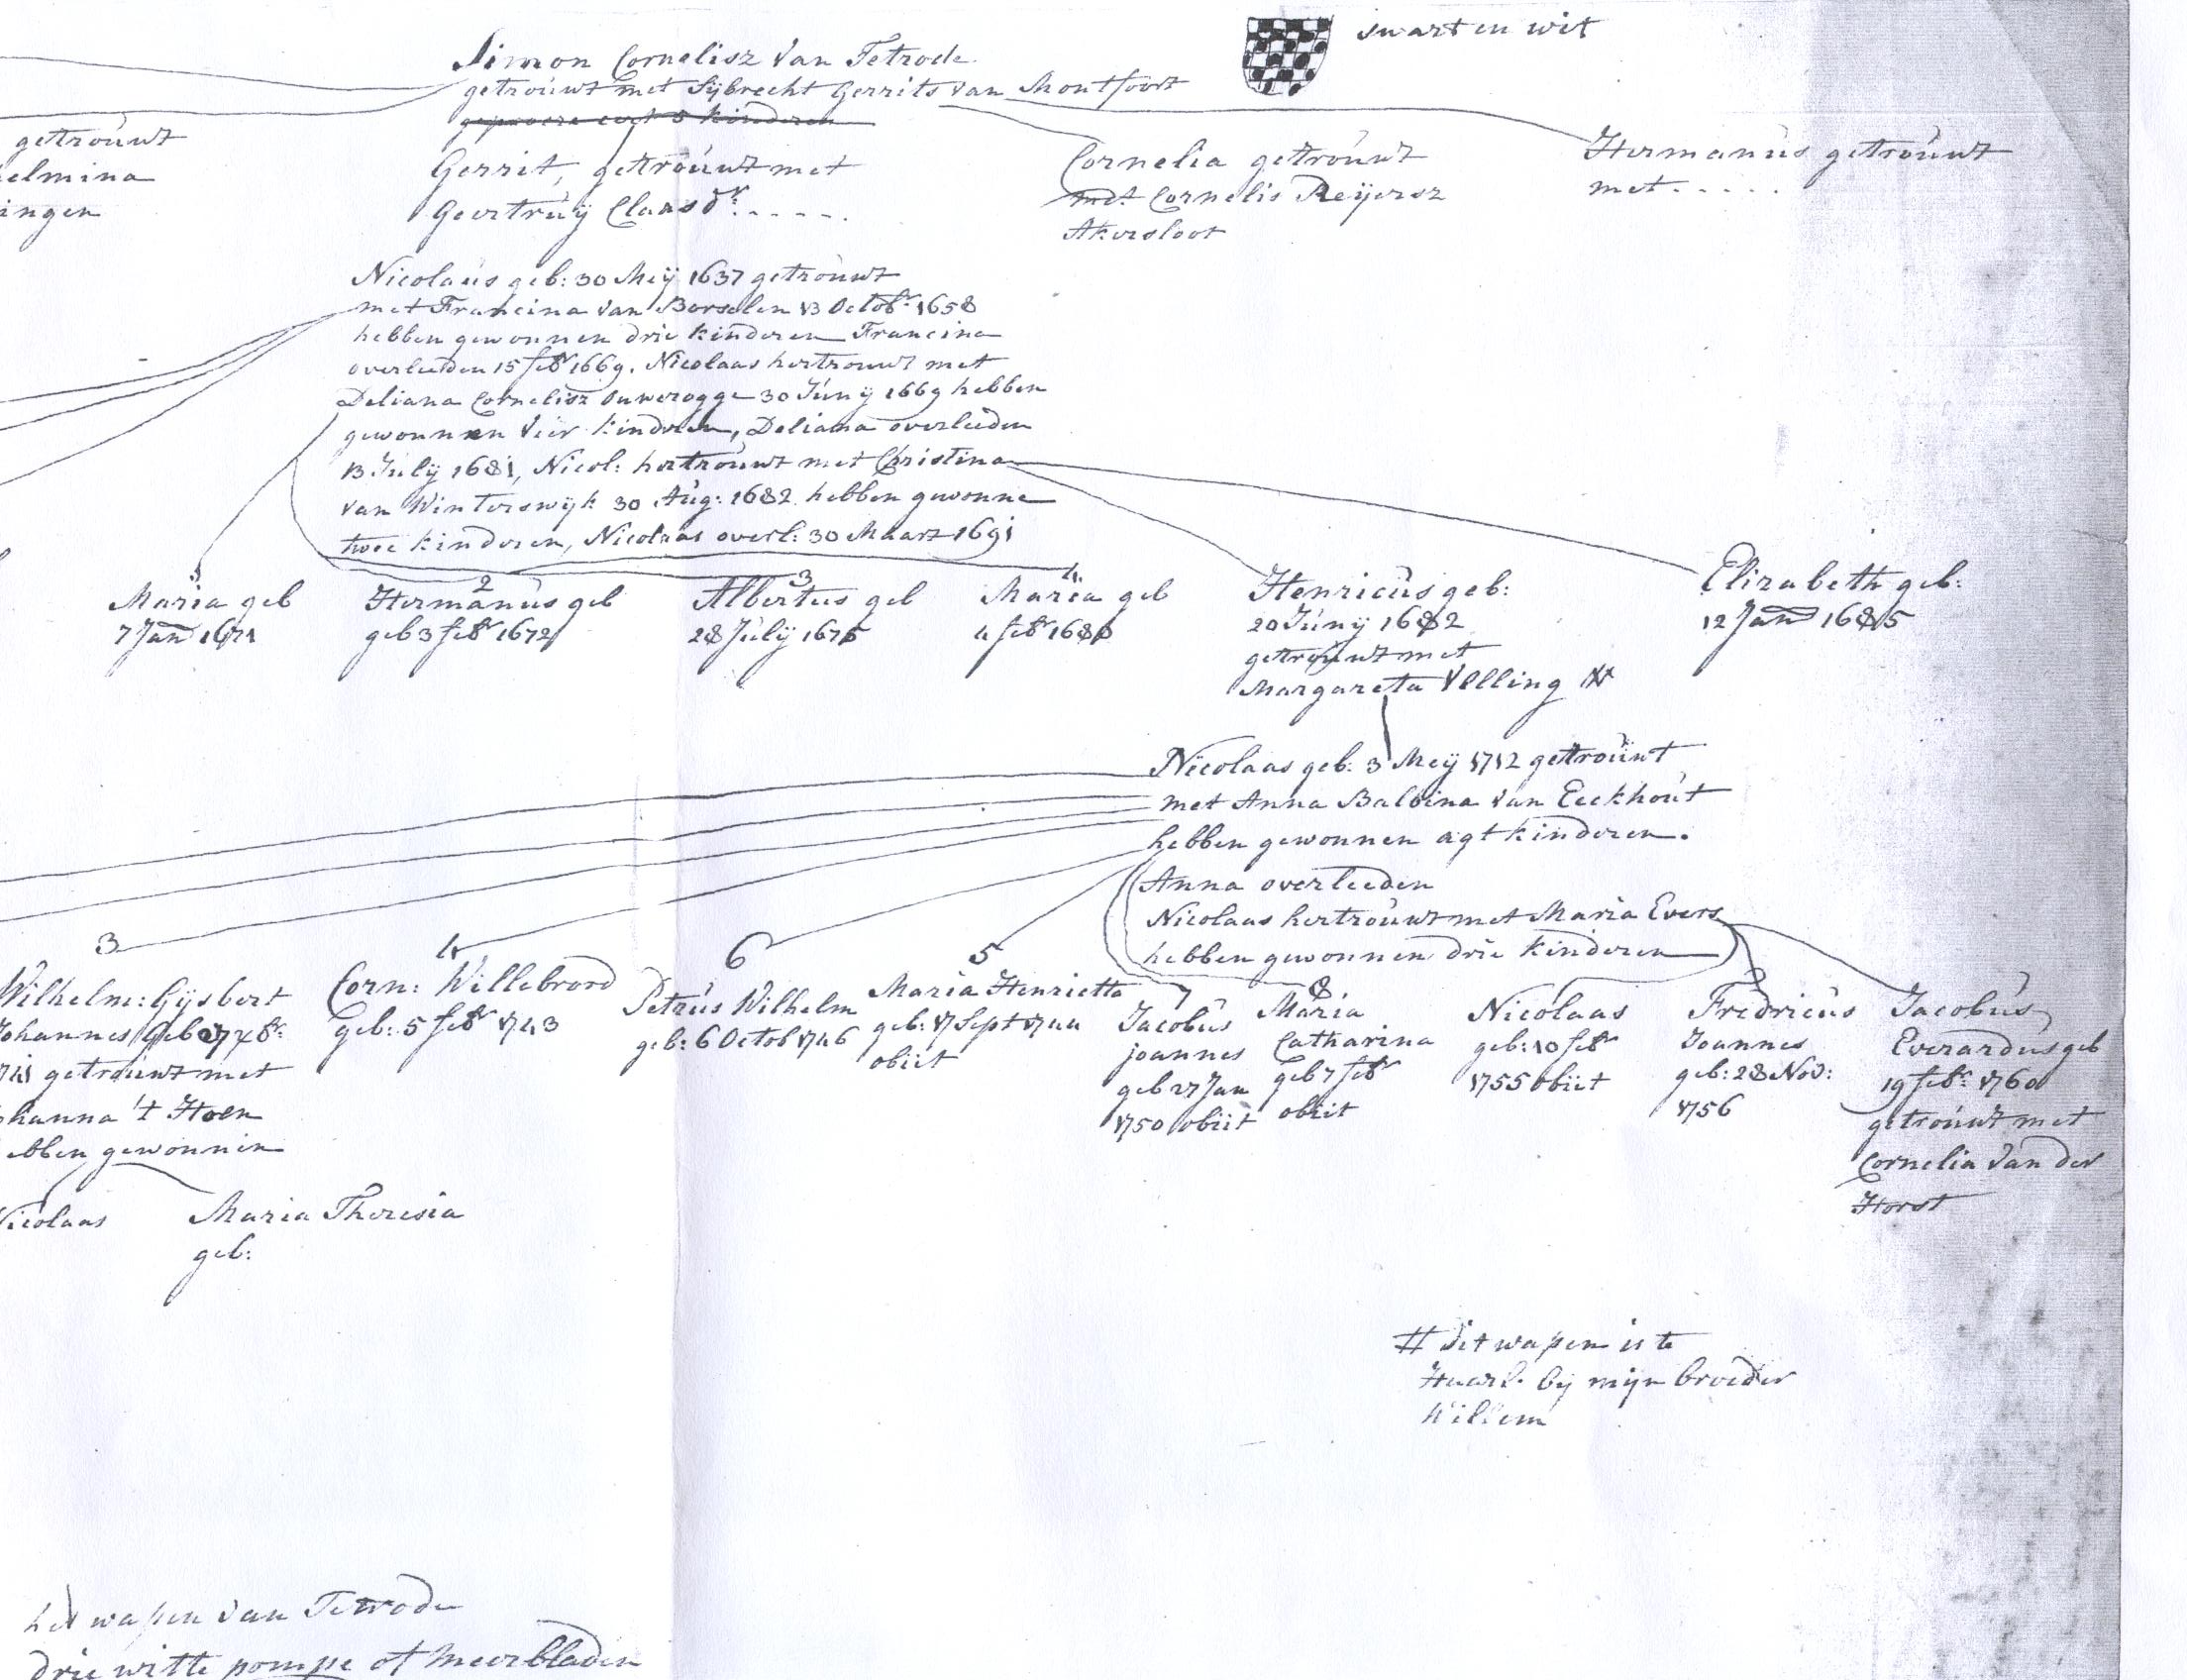 swart en wit
Simon Cornelisz van Tetrode
getrouwt met Sijbrecht Gerrits van Montfoort
5 kinderen
getrouwt
elmina
ingen
Gerrit, getrouwt met
Geertruij Claas dr: - - - - -
Cornelia getrouwt
met Cornelis Reijersz
Akersloot
Hermanus getrouwt
met - - - - -
Nicolaus geb: 30 Meij 1637 getrouwt
met Francina van Borselen 13 Octobr 1658
hebben gewonnen drie kinderen Francina
overleeden 15 febr 1669. Nicolaas hertrouwt met
Deliana Cornelisz Ouwerogge 30 Junij 1669 hebben
gewonnen vier kinderen, Deliana overleeden
13 Julij 1681, Nicol: hertrouwt met Christina
van Winterswijk 30 Aug: 1682 hebben gewonne
twee kinderen, Nicolaas overl: 30 Maart 1691
Maria geb
7 Jan 1671
2
Hermanus geb
geb 3 febr 1672
3
Albertus geb
28 Julij 1675
4
Maria geb
4 febr 1680
Henricus geb:
20 Junij 1682
getrouwt met
Margareta Velling #
Elizabeth geb:
12 Jan 1685
Nicolaas geb: 3 Meij 1712 getrouwt
met Anna Balbina van Eeckhout
hebben gewonnen agt kinderen.
Anna overleeden
Nicolaas hertrouwt met Maria Evers
hebben gewonnen drie kinderen
3
Wilhelm: Gijsbert
Johannes geb 7br
1741 getrouwt met
Johanna 't Hoen
hebben gewonnen
Nicolaas
Maria Theresia
geb:
4
Corn: Willebrord
geb: 5 febr 1743
6
Petrus Wilhelm
geb: 6 Octob 1746
5
Maria Henrietta
geb: 17 Sept 1744
obiit
7
Jacobus
joannes
geb 27 Jan
1750 obiit
8
Maria
Catharina
geb 7 febr
obiit
Nicolaas
geb: 10 febr
1755 obiit
Fredricus
Joannes
geb: 28 Nov:
1756
Jacobus
Everardus geb
19 febr: 1760
getrouwt met
Cornelia van der
Horst
# dit wapen is te
Haarl. bij mijn broeder
Willem
het wapen van Tetrode
drie witte pompe of meerbladen